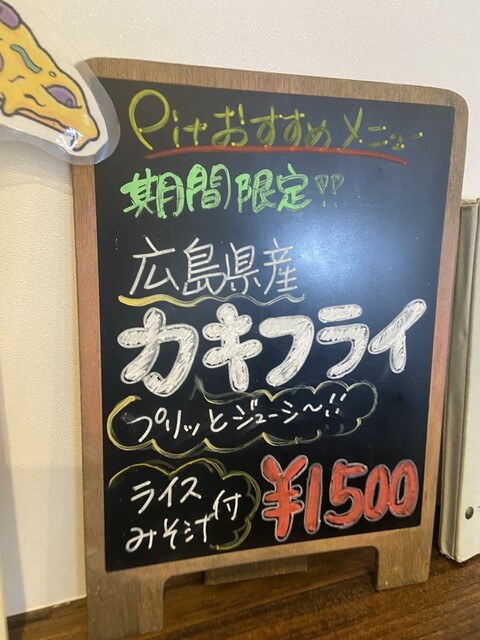 Pitおすすめメニュー
期間限定!!
広島県産
カキフライ
プリッとジューシ〜!!
ライス
みそ汁付
¥1500